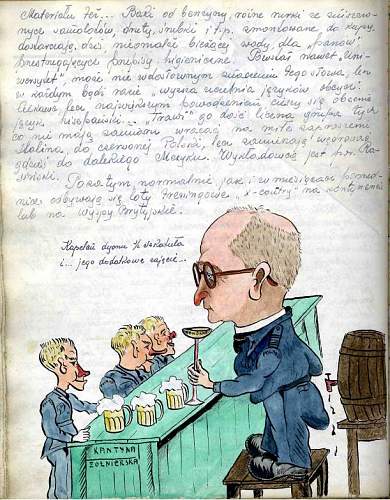 Materiału też... Bańki od benzyny, różne rurki ze zniszczo-
nych samolotów, druty, śrubki i t.p. zmontowane do kupy,
dostarczają dziś niemalże bieżącej wody dla "panów"
przestrzegających przepisy higieniczne. Powstał nawet "Uni-
wersytet" może nie w dosłownym znaczeniu tego słowa, lecz
w każdym bądź razie "wyższa uczelnia języków obcych".
Ciekawe, lecz największym powodzeniem cieszy się obecnie
język hiszpański... "Trawi" go dość liczna grupa tych
co nie mają zamiaru wracać na miłe zaproszenie
Stalina, do czerwonej Polski, lecz zamierzają wyemigrować
gdzieś do dalekiego Meksyku. Wykładowcą jest p. n.
Poza tym normalnie jak i w miesiącach poprzed-
nich odbywają się loty treningowe, i "x-country" na kontynencie
lub na Wyspy Brytyjskie.
Kapelan dyonu
i... jego dodatkowe zajęcie...
KANTYNA
ŻOŁNIERSKA